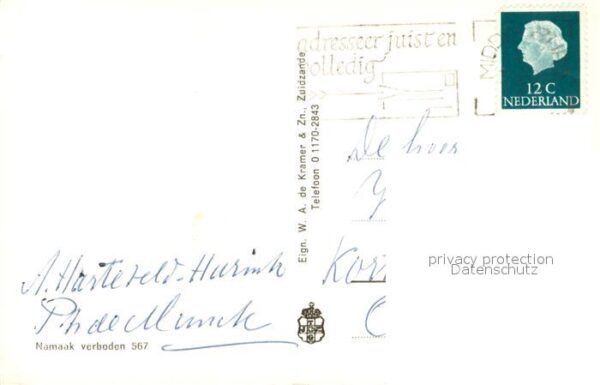 adresseer juist en
volledig
MIDD
12 C
NEDERLAND
Eign. W. A. de Kramer & Zn., Zuidzande
Telefoon 0 1170-2843
De heer
Y
Kor
privacy protection
Datenschutz
A. Harteveld-Hurink
Ph de Munck
C
Namaak verboden 567